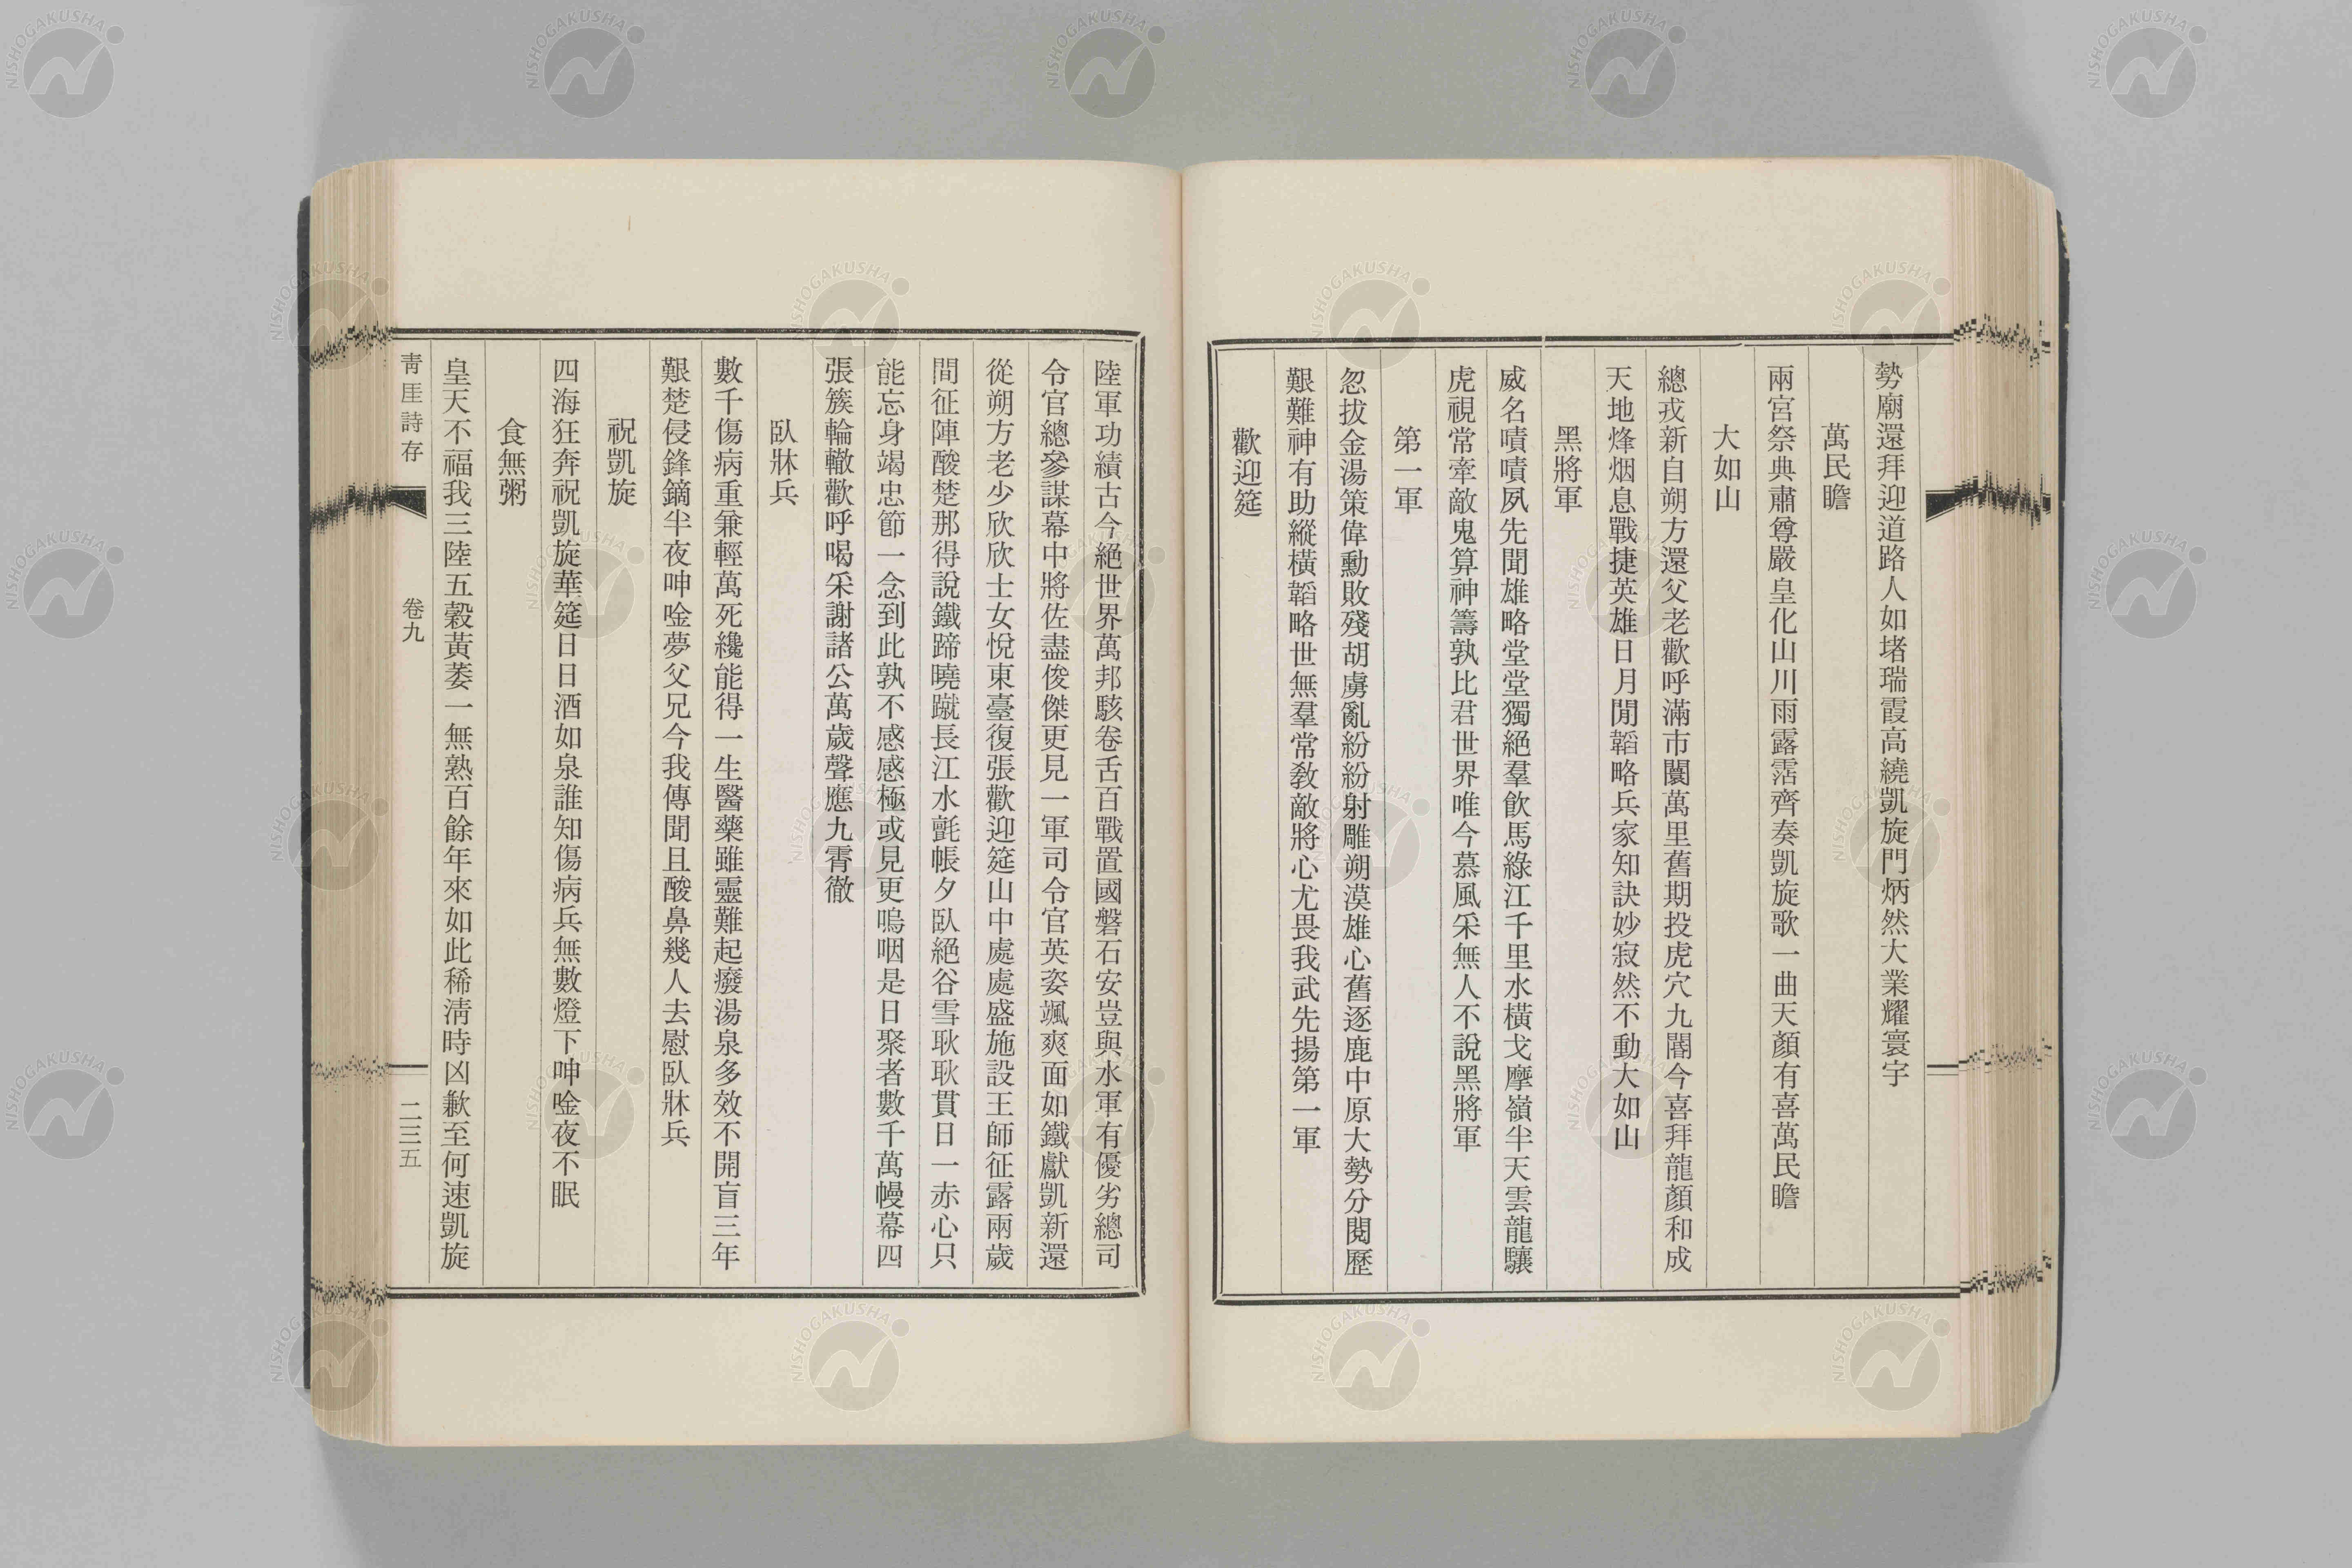 勢廟還拜迎道路人如堵瑞霞高繞凱旋門炳然大業耀寰宇
萬民瞻
兩宮祭典肅尊嚴皇化山川雨露霑齊奏凱旋歌一曲天顏有喜萬民瞻
大如山
總戎新自朔方還父老歡呼滿市闤萬里舊期投虎穴九閽今喜拜龍顏和成
天地烽烟息戰捷英雄日月閒韜略兵家知訣妙寂然不動大如山
黑將軍
威名嘖嘖夙先聞雄略堂堂獨絕羣飮馬綠江千里水橫戈摩嶺半天雲龍驤
虎視常牽敵鬼算神籌孰比君世界唯今慕風采無人不說黑將軍
第一軍
忽拔金湯策偉勳敗殘胡虜亂紛紛射雕朔漠雄心舊逐鹿中原大勢分閱歷
艱難神有助縱橫韜略世無羣常敎敵將心尤畏我武先揚第一軍
歡迎筵
陸軍功績古今絕世界萬邦駭卷舌百戰置國磐石安豈與水軍有優劣總司
令官總參謀幕中將佐盡俊傑更見一軍司令官英姿颯爽面如鐵獻凱新還
從朔方老少欣欣士女悅東臺復張歡迎筵山中處處盛施設王師征露兩歲
間征陣酸楚那得說鐵蹄曉蹴長江水氈帳夕臥絕谷雪耿耿貫日一赤心只
能忘身竭忠節一念到此孰不感感極或見更嗚咽是日聚者數千萬幔幕四
張簇輪轍歡呼喝采謝諸公萬歲聲應九霄徹
臥牀兵
數千傷病重兼輕萬死纔能得一生醫藥雖靈難起癈湯泉多效不開盲三年
艱楚侵鋒鏑半夜呻唫夢父兄今我傳聞且酸鼻幾人去慰臥牀兵
祝凱旋
四海狂奔祝凱旋華筵日日酒如泉誰知傷病兵無數燈下呻唫夜不眠
食無粥
皇天不福我三陸五穀黃萎一無熟百餘年來如此稀淸時凶歉至何速凱旋
靑厓詩存
卷九
二三五
NISHOGAKUSHA